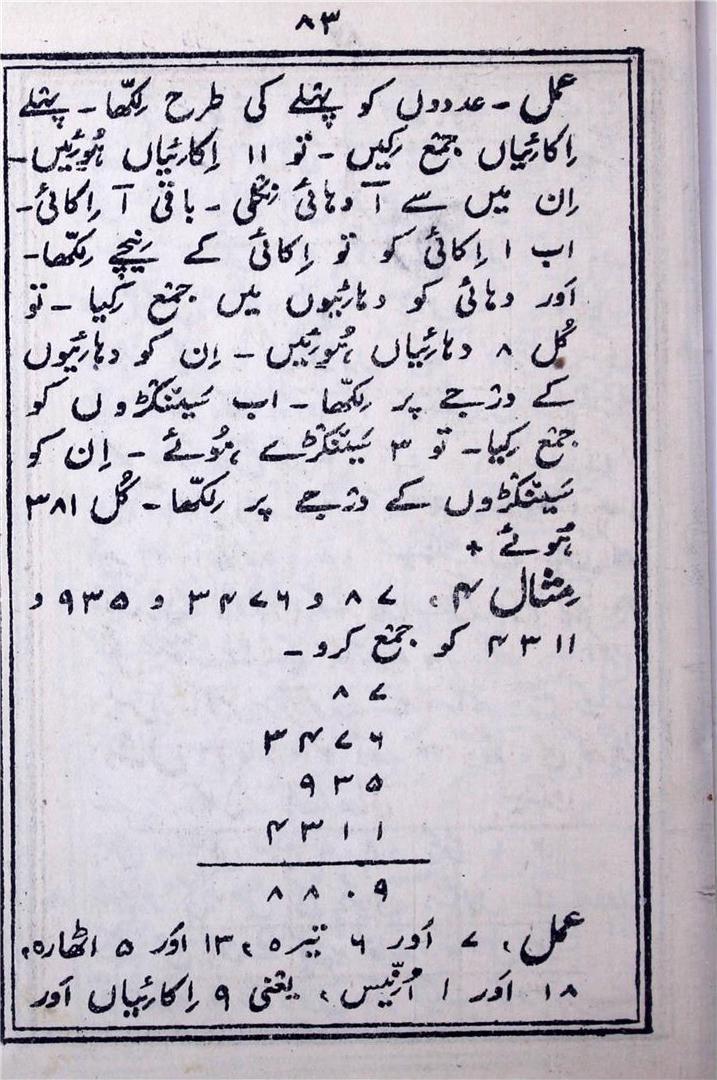 ۸۳
عمل - عددوں کو پہلے کی طرح رِکھّا - پہلے
اِکائِیاں جمع رکیں - تو ۱۱ اِکائِیاں ہُوئِیں -
اِن میں سے آ دہائی نِکلی - باقی آ اِکائی -
اب ۱ اِکائی کو تو اِکائی کے نِیچے رِکھّا -
اَور دہائی کو دہائِیوں میں جمع رکیا - تو
کُل ۸ دہائِیاں ہُوئِیں - اِن کو دہائِیوں
کے درجے پر رِکھّا - اب سَینکڑوں کو
جمع رکیا - تو ۳ سَینکڑے ہُوئے - اِن کو
سَینکڑوں کے درجے پر رِلکھّا - کُل ۳۸۱
ہُوئے +
مِثال ۴، ۸۷ و ۳۴۷۶ و ۹۳۵ و
۴۳۱۱ کو جمع کرو -
۸۷
۳۴۷۶
۹۳۵
۴۳۱۱
۸۸۰۹
عمل، ۷ اَور ۶ تیرہ، ۱۳ اَور ۵ اٹھارہ،
۱۸ اَور ۱ اُنّیس، یعنی ۹ اِکائِیاں اَور